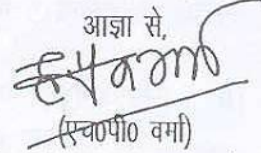 आज्ञा से,
(एच0पी0 वर्मा)